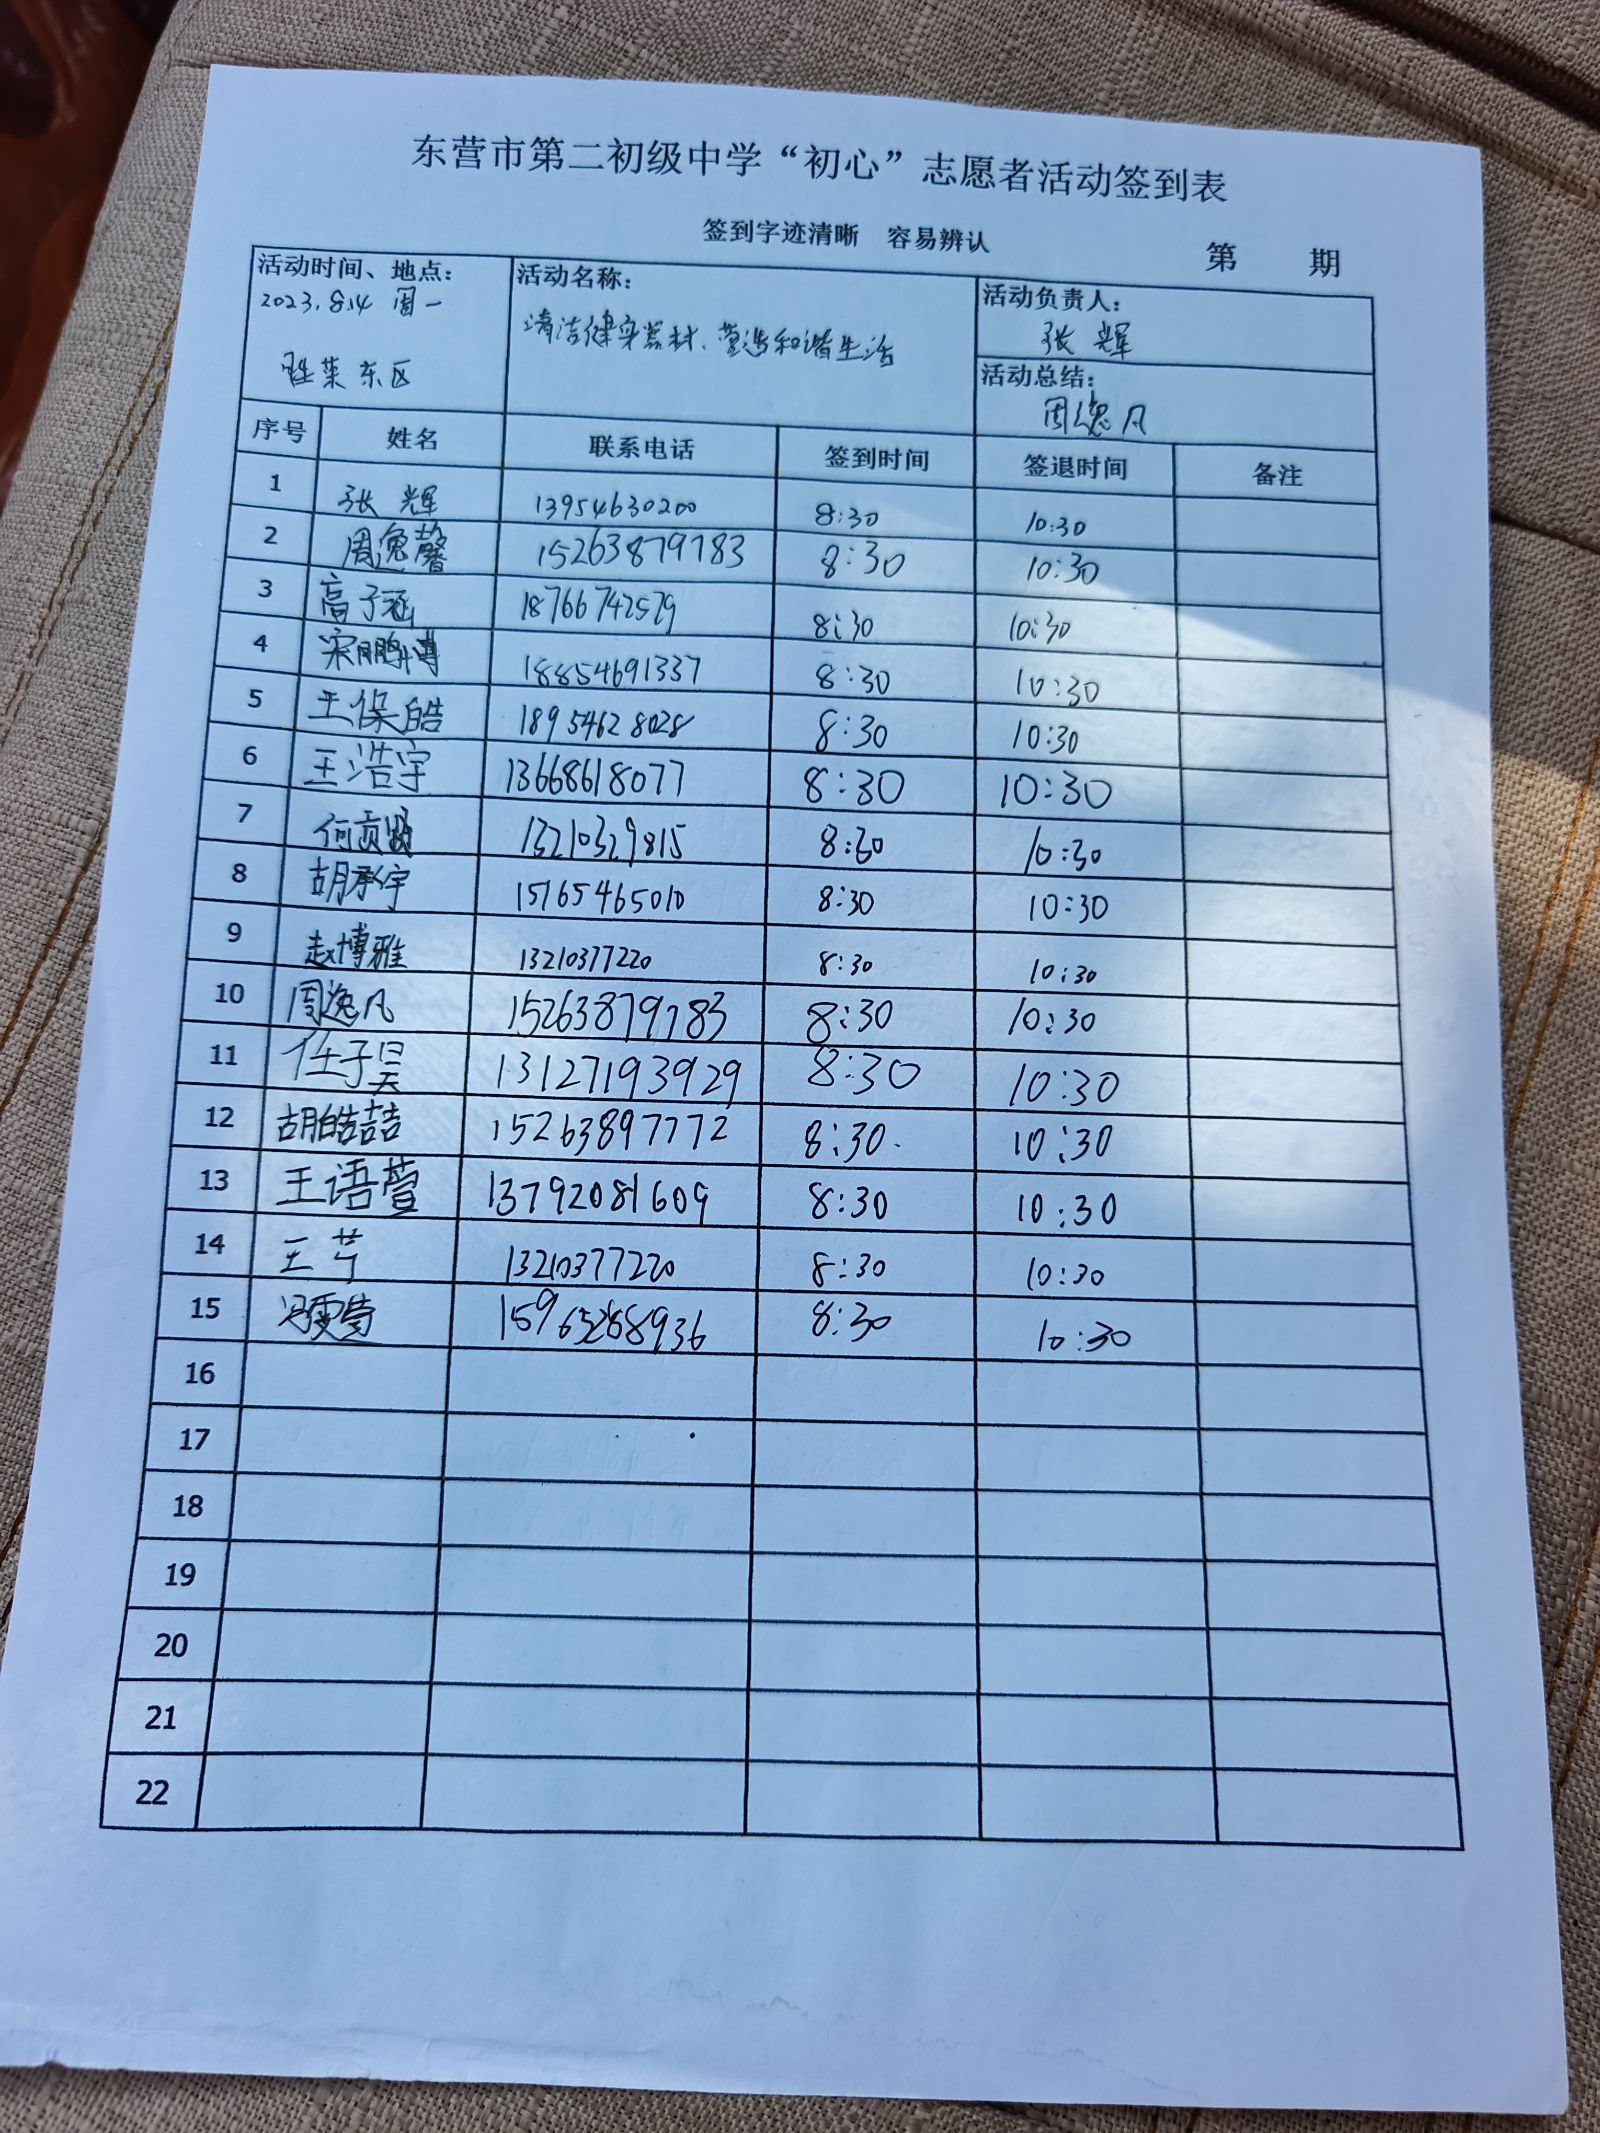 东营市第二初级中学“初心”志愿者活动签到表
签到字迹清晰 容易辨认 第 期
活动时间、地点： 活动名称： 活动负责人：
2023.8.14 周一 清洁健身器材、营造和谐生活 张辉
胜莱东区 活动总结：
周逸凡
序号 姓名 联系电话 签到时间 签退时间 备注
1 张辉 13954630200 8:30 10:30
2 周逸馨 15263879783 8:30 10:30
3 高子涵 18766742579 8:30 10:30
4 宋鹏博 18854691337 8:30 10:30
5 王保皓 18954628028 8:30 10:30
6 王浩宇 13668618077 8:30 10:30
7 何贡 13210329815 8:30 10:30
8 胡承宇 15765465010 8:30 10:30
9 赵博雅 13210377220 8:30 10:30
10 周逸凡 15263879783 8:30 10:30
11 任子昊 13127193929 8:30 10:30
12 胡皓喆 15263897772 8:30 10:30
13 王语萱 13792081609 8:30 10:30
14 王芊 13210377220 8:30 10:30
15 冯雯 15965268936 8:30 10:30
16
17
18
19
20
21
22